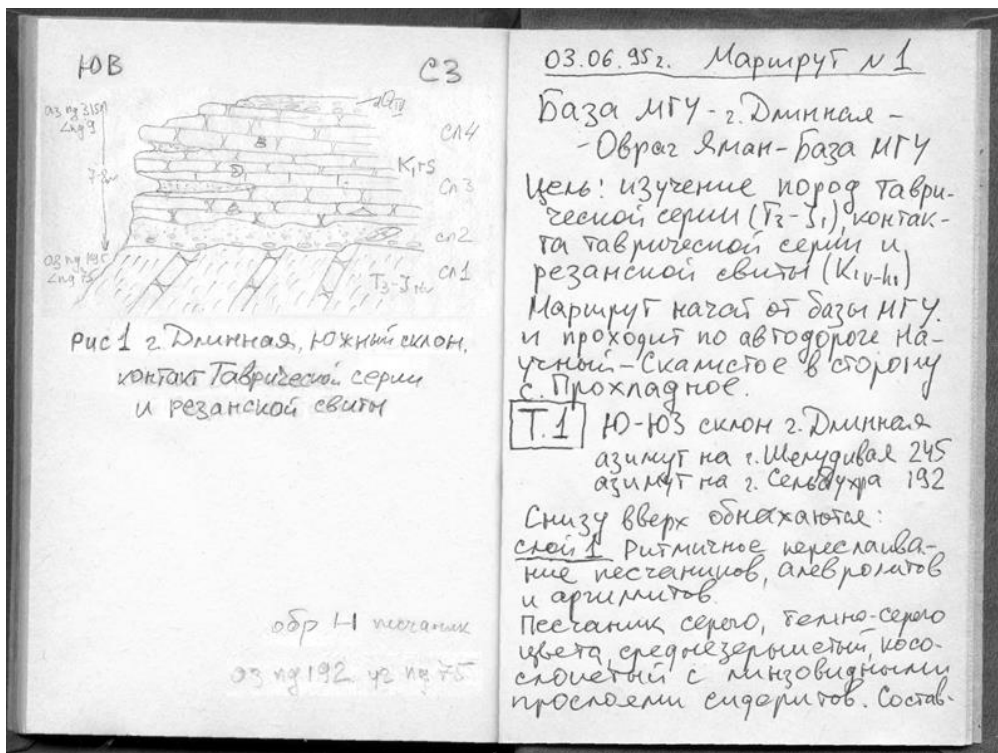 ЮВ
СЗ
аз пд 315
∠пд 9
7-8м
аз пд 195
∠пд 75
dQIV
сл4
K1rs
сл3
сл2
сл1
T3-J1
Рис 1 г. Длинная, южный склон,
контакт Таврической серии
и резанской свиты
обр 1-1 песчаник
аз пд 192 уг пд 75
03.06.95г. Маршрут N 1
База МГУ - г. Длинная -
- Овраг Яман - База МГУ
Цель: изучение пород Таври-
ческой серии (T3-J1), контак-
та таврической серии и
резанской свиты (K1v-h1)
Маршрут начат от базы МГУ.
и проходит по автодороге На-
учный - Скалистое в сторону
с. Прохладное.
Т.1 Ю-ЮЗ склон г. Длинная
азимут на г. Шелудивая 245
азимут на г. Сельбухра 192
Снизу вверх обнажаются:
слой 1 Ритмичное переслаива-
ние песчаников, алевролитов
и аргиллитов.
Песчаник серого, темно-серого
цвета, среднезернистый, косо-
слоистый с линзовидными
прослоями сидеритов. Состав-